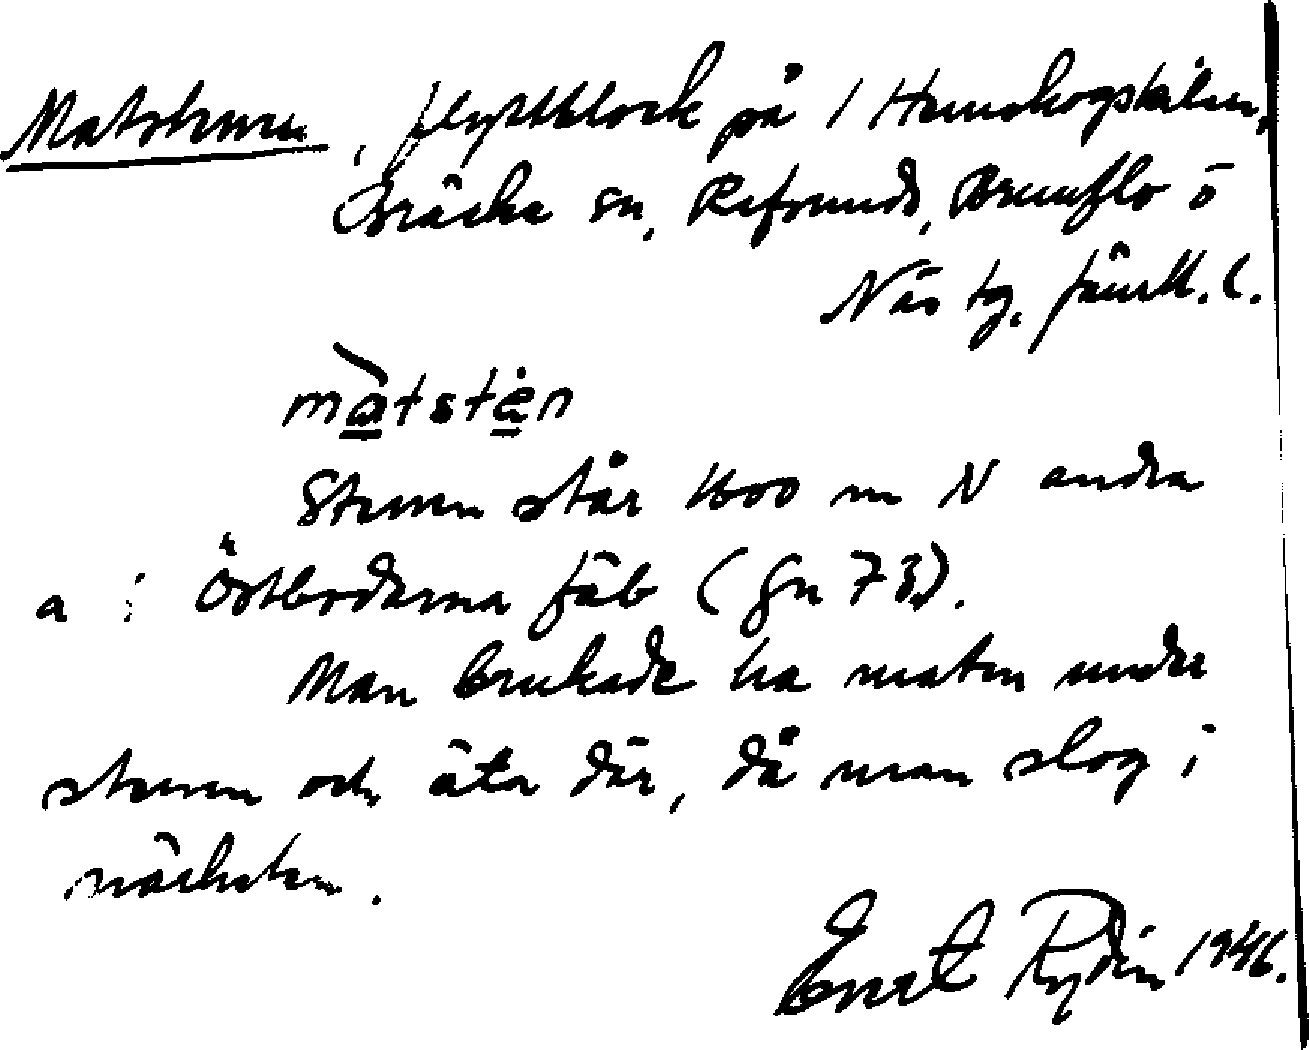 Matstenen, flyttblock på 1 Hunskogskälen,
Bräcke sn, Refsunds, Brunflo o
Näs tg, Jämtl. l.
màtstèn
Stenen står 1600 m N andra
a i Östbodarna fäb (gn 73).
Man brukade ha maten under
stenen och äta där, då man slog i
närheten.
Ernst Rydin 1946.